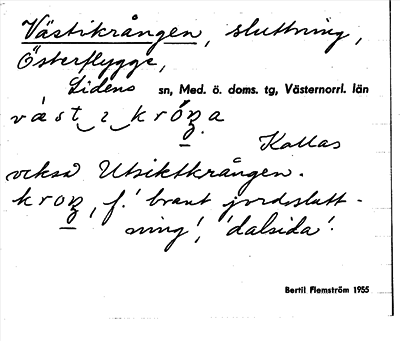 Västikrången, sluttning,
Österflygge,
Lidens sn, Med. ö. doms. tg, Västernorrl. län
Kallas
också Utsiktkrången.
f. 'brant jordslutt-
ning', 'dalsida'.
Bertil Flemström 1955